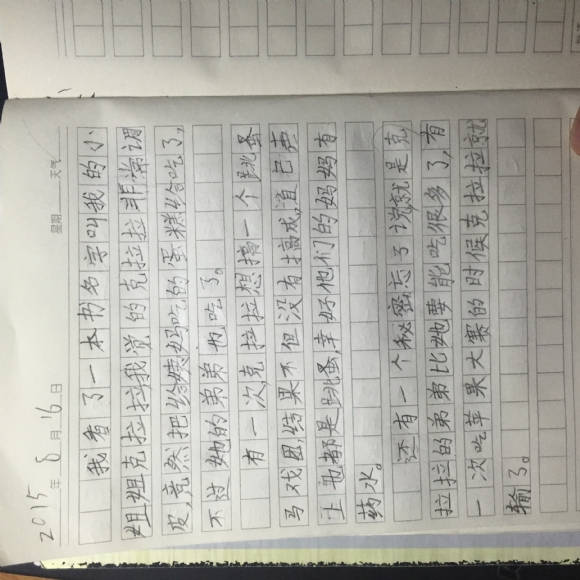 2015年8月16日 星期 天气
我看了一本书名字叫我的小
姐姐克拉拉我觉的克拉拉非常调
皮,竟然把给姨妈吃的蛋糕给吃了,
不过她的弟弟也吃了。
有一次,克拉拉想搞一个跳蚤
马戏团,结果不但没有搞成,自己身
上也都是跳蚤,幸好他们的妈妈有
药水。
还有一个秘密忘了说就是克
拉拉的弟弟比她要能吃很多了,有
一次吃苹果大赛的时候克拉拉就
输了。